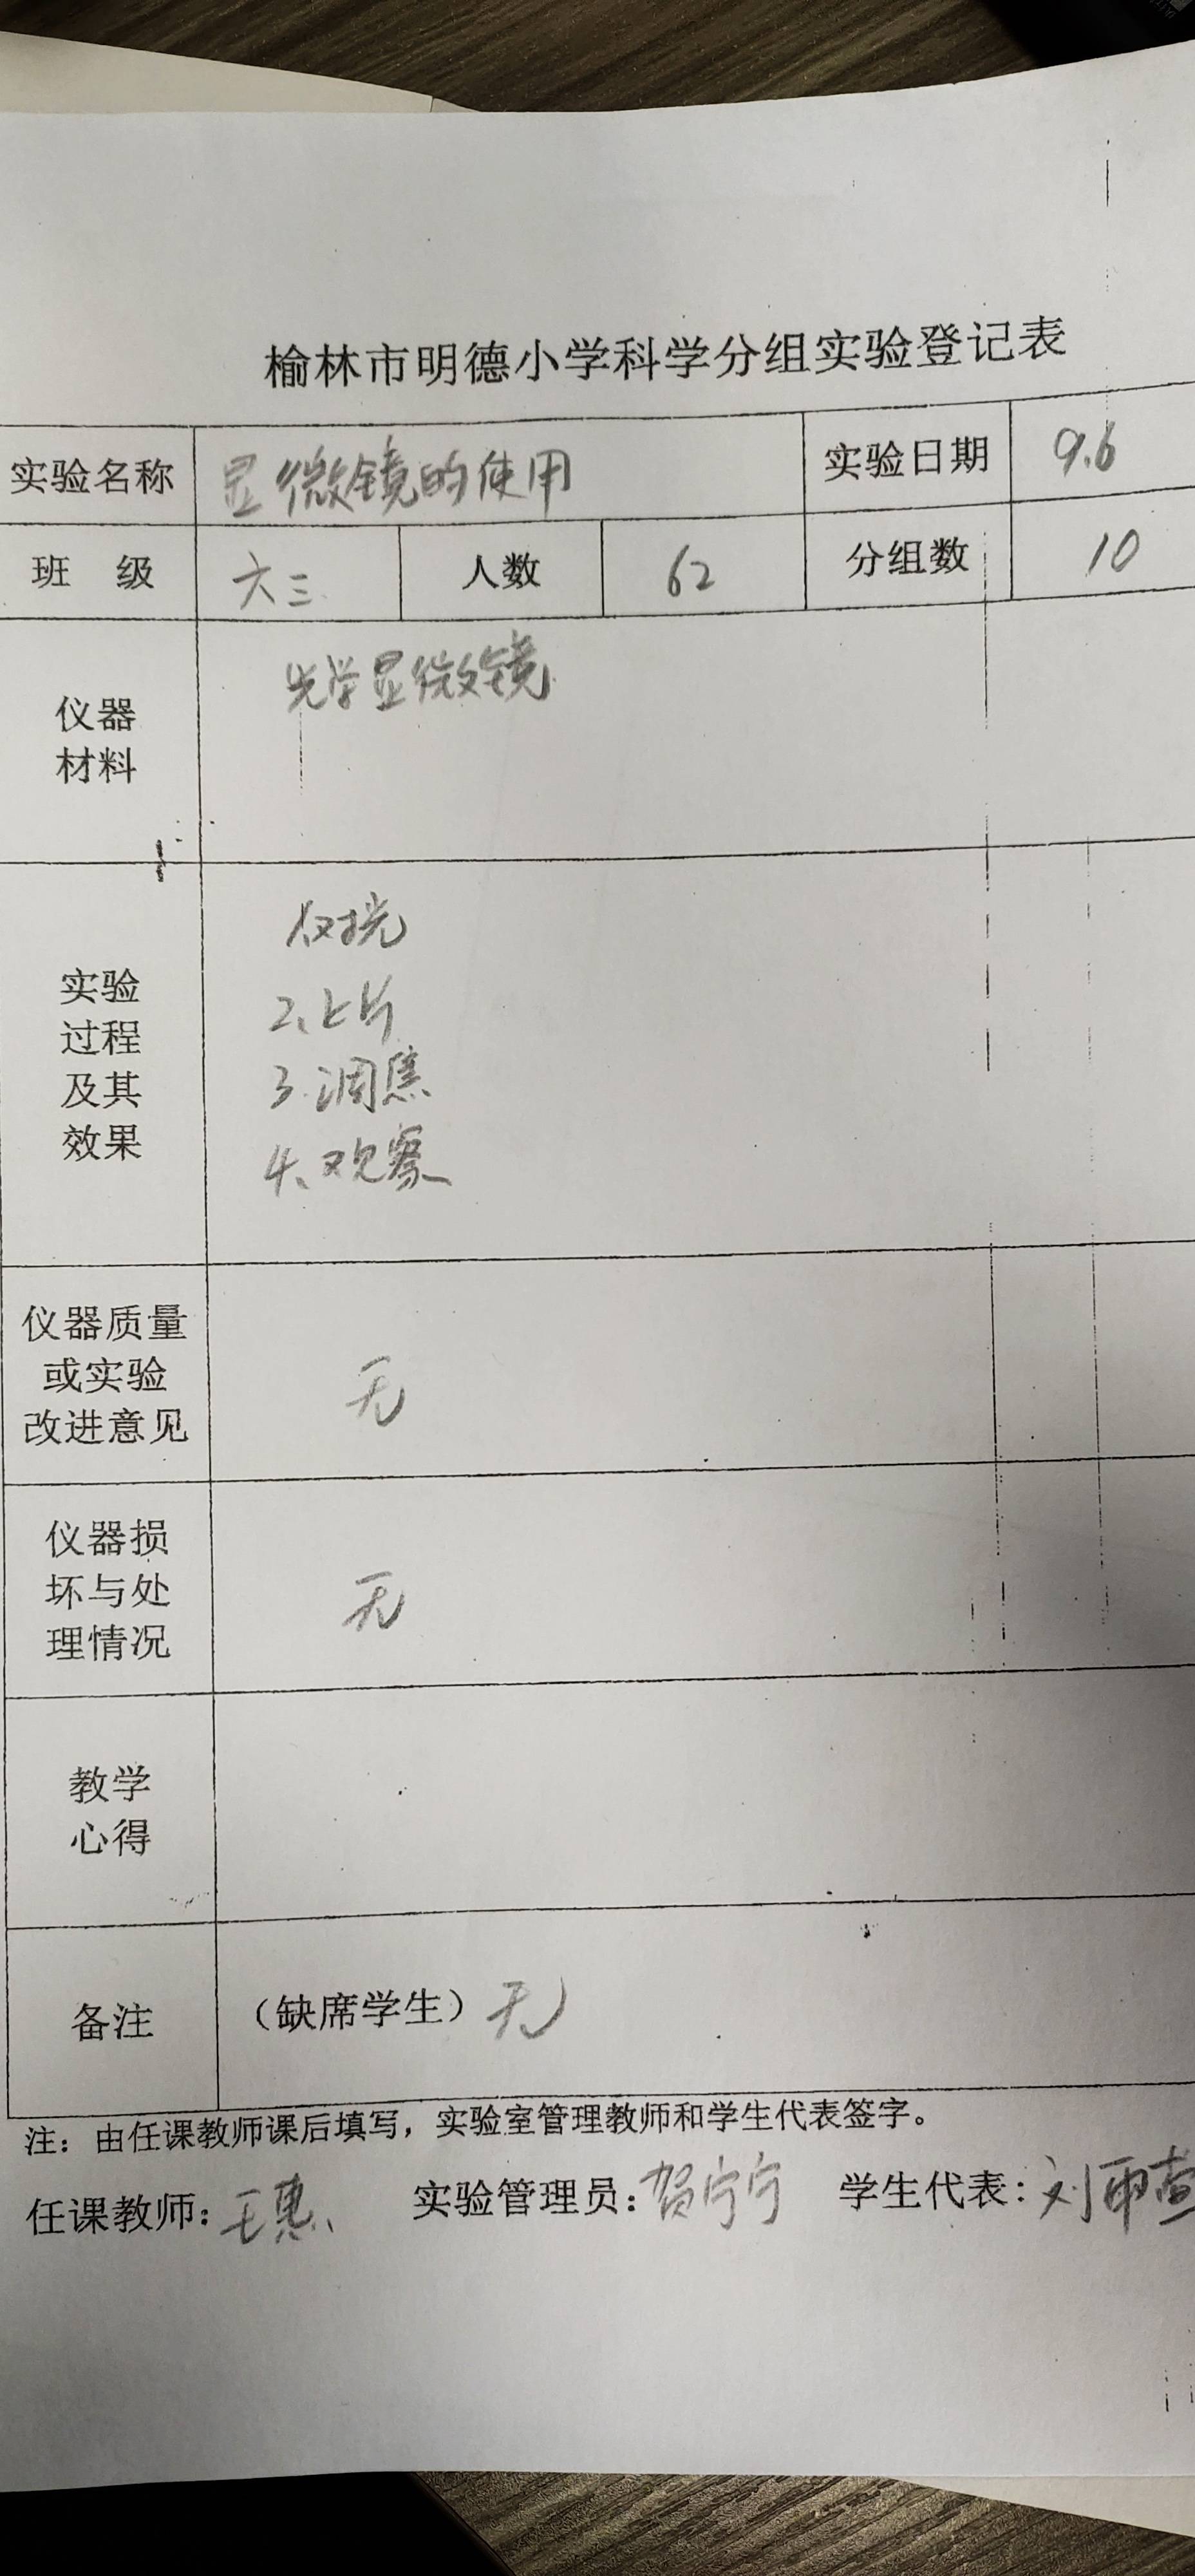 榆林市明德小学科学分组实验登记表
实验名称 显微镜的使用 实验日期 9.6
班 级 六三 人数 62 分组数 10
仪器
材料
光学显微镜
实验
过程
及其
效果
2、上片
3.调焦
4、观察
仪器质量
或实验
改进意见
无
仪器损
坏与处
理情况
无
教学
心得
备注 （缺席学生）无
注：由任课教师课后填写，实验室管理教师和学生代表签字。
任课教师：王惠 实验管理员：贺宁宁 学生代表：刘雨